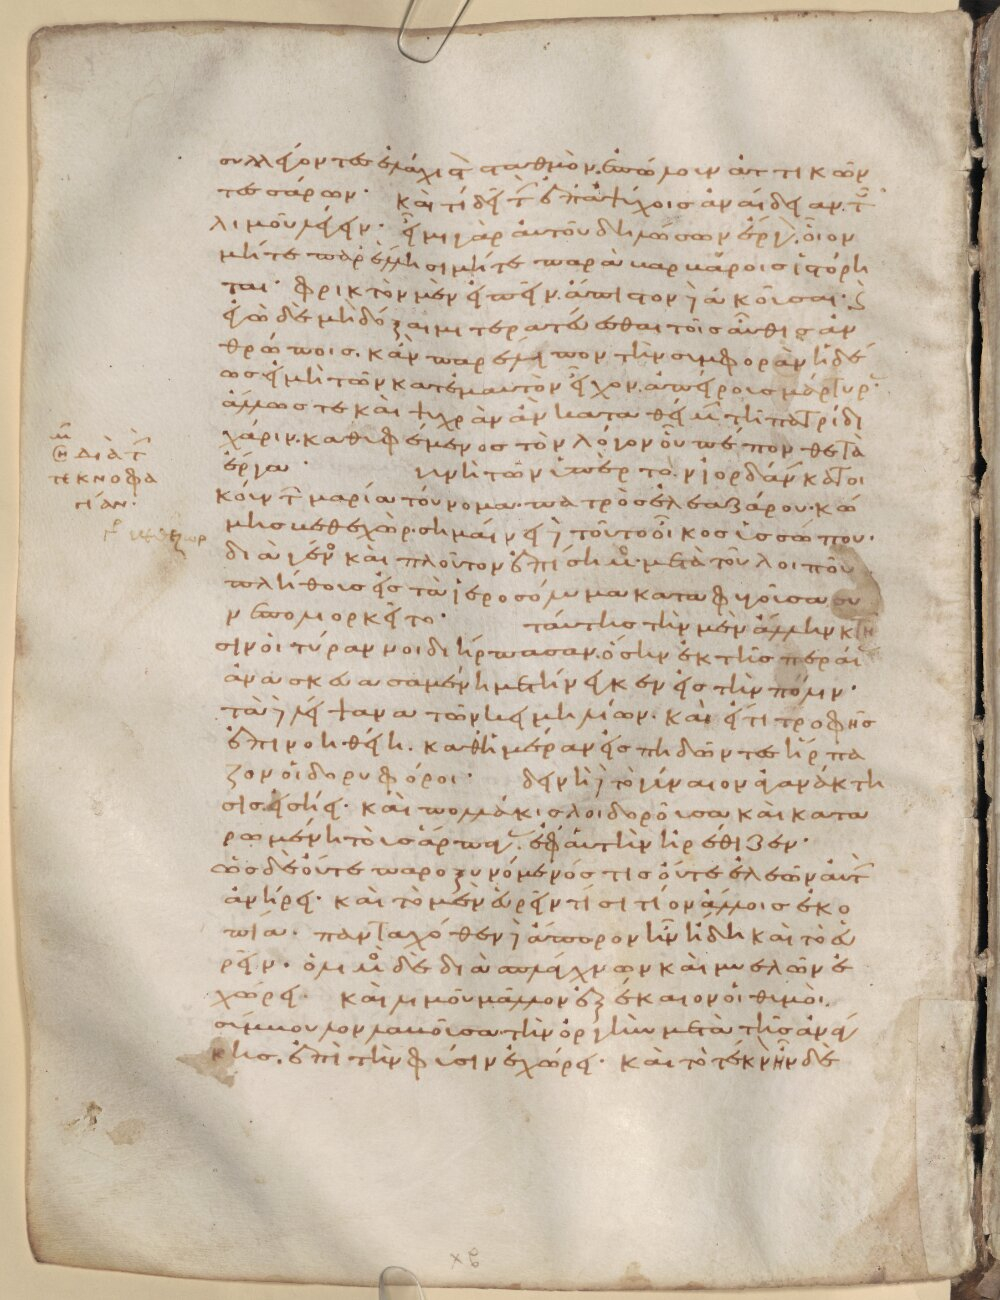 συλλέγοντες ἐλάχιστον σταθμὸν ἐπώλουν ἀττικῶν
τεσσάρων· καὶ τί δεῖ τὴν ἐπ' ἀψύχοις ἀναίδειαν τοῦ
λιμοῦ λέγειν· εἶμι γὰρ αὐτοῦ δηλώσων ἔργον οἷον
μήτε παρ' ἕλλησι μήτε παρὰ βαρβάροις ἱστόρη
ται· φρικτὸν μὲν εἰπεῖν. ἄπιστον δ' ἀκοῦσαι· καὶ
ἐγὼ δὲ μὴ δόξαιμι τερατεύεσθαι τοῖς αὖθις ἀν
θρώποις. κἂν παρέλειπον τὴν συμφορὰν ἡδέ
ως εἰ μὴ τῶν κατ' ἐμαυτὸν εἶχον. ἀπείρους μάρτυρας·
ἄλλως τε καὶ ψυχρὰν ἂν καταθείμην τῆ πατρίδι
χάριν. καθυφέμενος τὸν λόγον ὧν πέπονθε τὰ
ἔργα· γυνὴ τῶν ὑπὲρ τὸν ἰορδάνην κατοι
κούντων μαρία τοὔνομα. πατρὸς ἐλεαζάρου. κώ
μης βεθεχώρ. σημαίνει δὲ τοῦτο οἶκος ὑσσώπου.
διὰ γένος καὶ πλοῦτον ἐπίσημος. μετὰ τοῦ λοιποῦ
πλήθους εἰς τὰ ἱεροσόλυμα καταφυγοῦσα συ
νεπολιορκεῖτο· ταύτης τὴν μὲν ἄλλην κτῆ
σιν οἱ τύραννοι διήρπασαν. ὅσην ἐκ τῆς περαί
ἀνασκευασαμένη μετήνεγκεν εἰς τὴν πόλιν·
τὰ δὲ λείψανα τῶν κειμηλίων. καὶ εἴ τι τροφῆς
ἐπινοηθείη. καθ' ἡμέραν εἰσπηδῶντες ἥρπα
ζον οἱ δορυφόροι· δεινὴ δὲ τὸ γύναιον ἀγανάκτη
σις εἰσήει· καὶ πολλάκις λοιδοροῦσα καὶ κατα
ρωμένη τοὺς ἅρπαγας. ἐφ' αὑτὴν ἠρέθιζεν·
ὡς δὲ οὔτε παροξυνόμενός τις οὔτε ἐλεῶν αὐτὴν
ἀνήρει· καὶ τὸ μὲν εὑρεῖν τι σιτίον ἄλλοις ἐκο
πία. πανταχόθεν δ' ἄπορον ἦν ἤδη καὶ τὸ εὑ
ρεῖν. ὁ λιμὸς δὲ διὰ σπλάγχνων καὶ μυελῶν ἐ
χώρει· καὶ λιμοῦ μᾶλλον ἐξέκαιον οἱ θυμοί.
σύμβουλον λαβοῦσα τὴν ὀργὴν μετὰ τῆς ἀνάγ
κης. ἐπὶ τὴν φύσιν ἐχώρει· καὶ τὸ τέκνον ἦν δὲ
διὰ τὴν
τεκνοφα
γίαν·